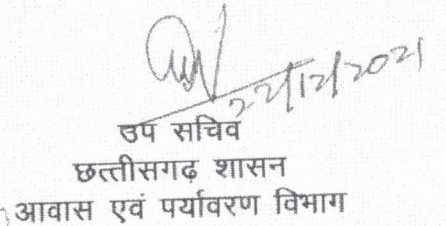 22/12/2021
उप सचिव
छत्तीसगढ़ शासन
आवास एवं पर्यावरण विभाग